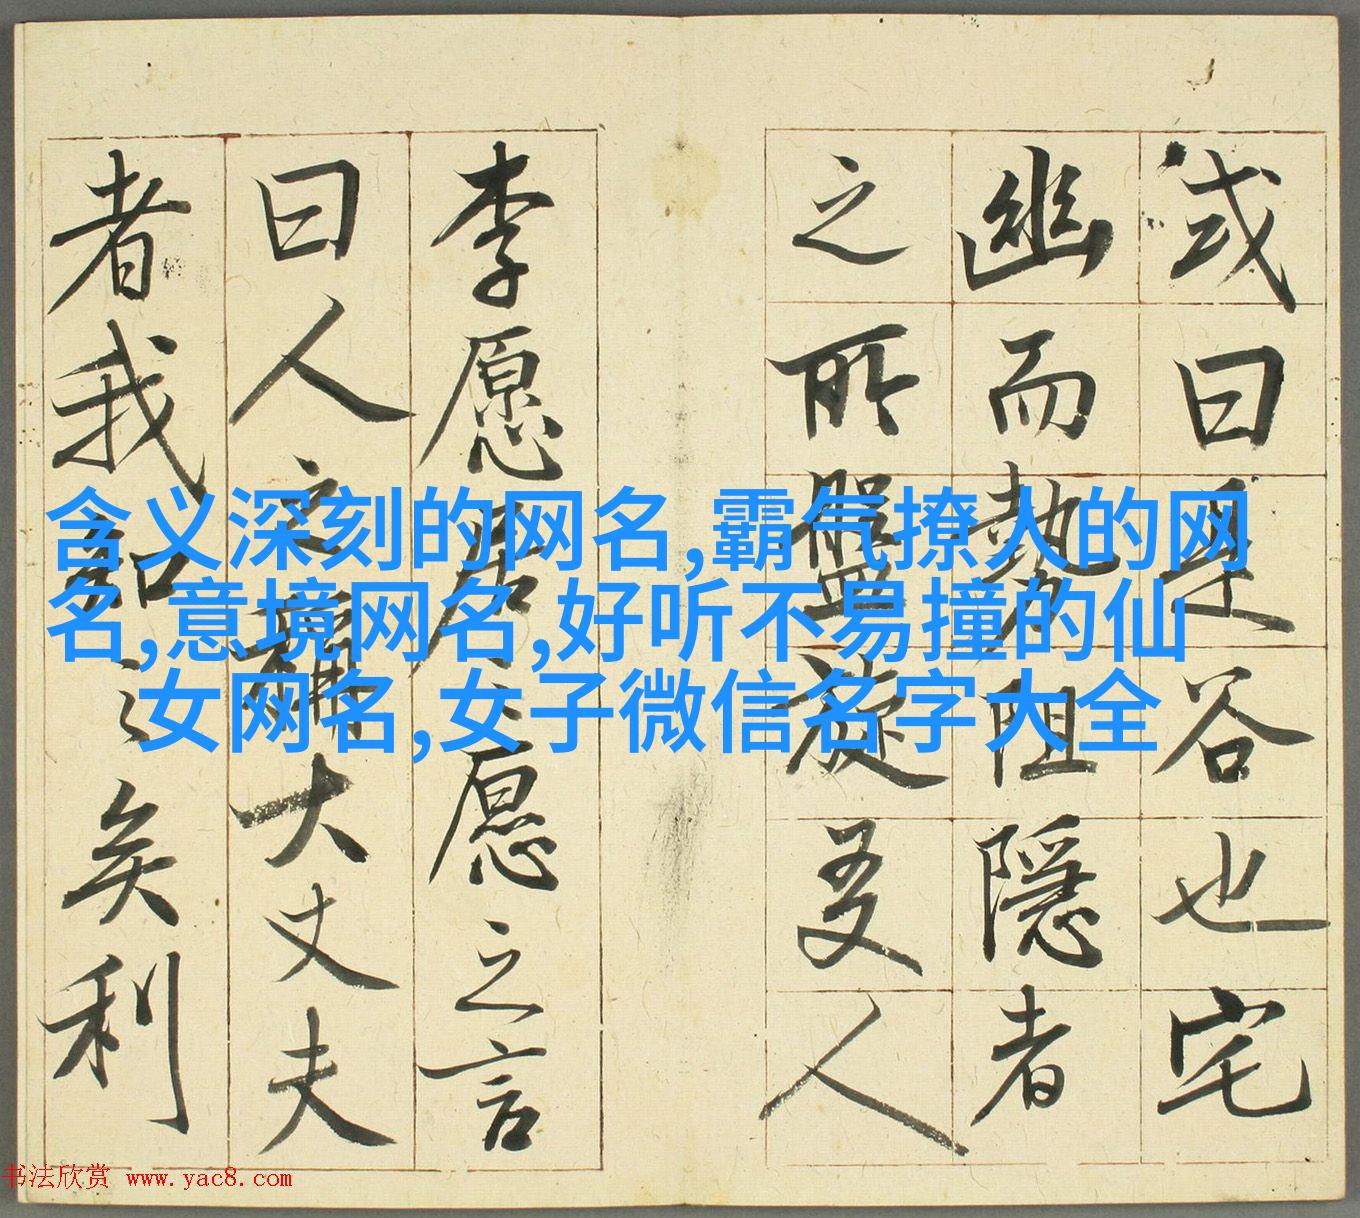 或曰是谷也宅
幽而勢阻隱者
之所盤旋友人
李愿居之愿之言
曰人之稱大丈夫
者我知之矣利
含义深刻的网名,霸气撩人的网
名,意境网名,好听不易撞的仙
女网名,女子微信名字大全
书法欣赏 www.yac8.com